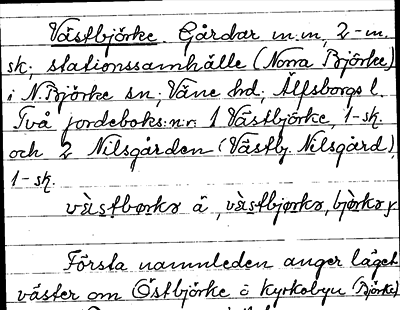 Västbjörke. Gårdar m.m., 2-m.
sk; stationssamhälle (Norra Björke)
i N. Björke sn; Väne hd; Älfsborgs l.
Två jordeboks:n:r: 1 Västbjörke, 1-sk.
och 2 Nilsgården (Västbj. Nilsgård),
1-sk.
Första namnleden anger läget
väster om Östbjörke o kyrkobyn (Björke)